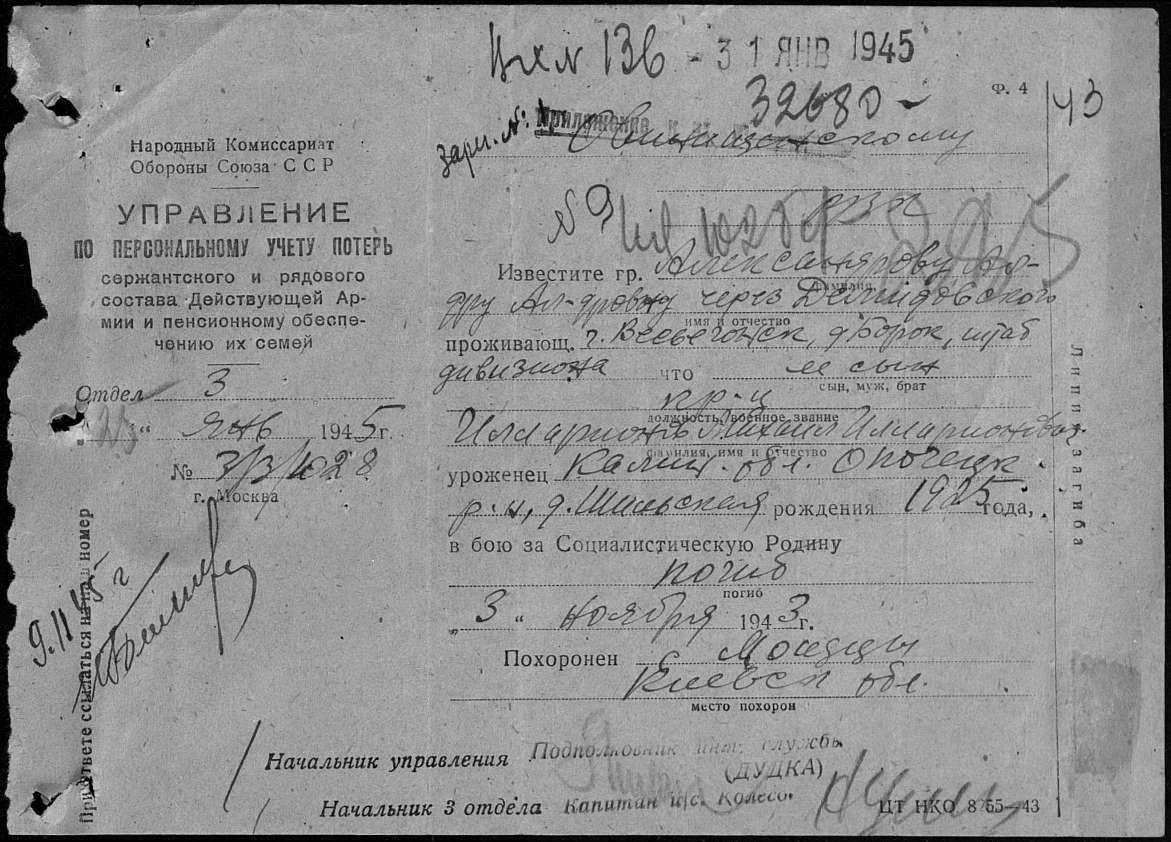 136 - 31 ЯНВ 1945
32680 -
Ф. 4
143
Приложение
Народный Комиссариат
Обороны Союза ССР
УПРАВЛЕНИЕ
ПО ПЕРСОНАЛЬНОМУ УЧЕТУ ПОТЕРЬ
сержантского и рядового
состава Действующей Ар-
мии и пенсионному обеспе-
чению их семей
Отдел 3
янв 1945г.
№ 3/3/1028
г. Москва
При ответе ссылаться на наш номер
9.II 45 г
№ 9
РВК
Известите гр. Александрову Ал-
фамилия,
дру Ал-дровичу через Демидовского
имя и отчество
проживающ. г. Весьегонск, д. Борок, штаб
дивизиона что сын
сын, муж, брат
кр-ц
должность, военное звание
Илларионов Михаил Илларионович
фамилия, имя и отчество
уроженец Калин. обл. Опочецк.
р-н, д. рождения 1925 года,
в бою за Социалистическую Родину
погиб
погиб
"3" ноября 1943г.
Похоронен с.
Киевск обл.
место похорон
Линия загиба
Начальник управления Подполковник инт. службы
(ДУДКА)
Начальник 3 отдела Капитан и/с.
ЦТ НКО 855—43